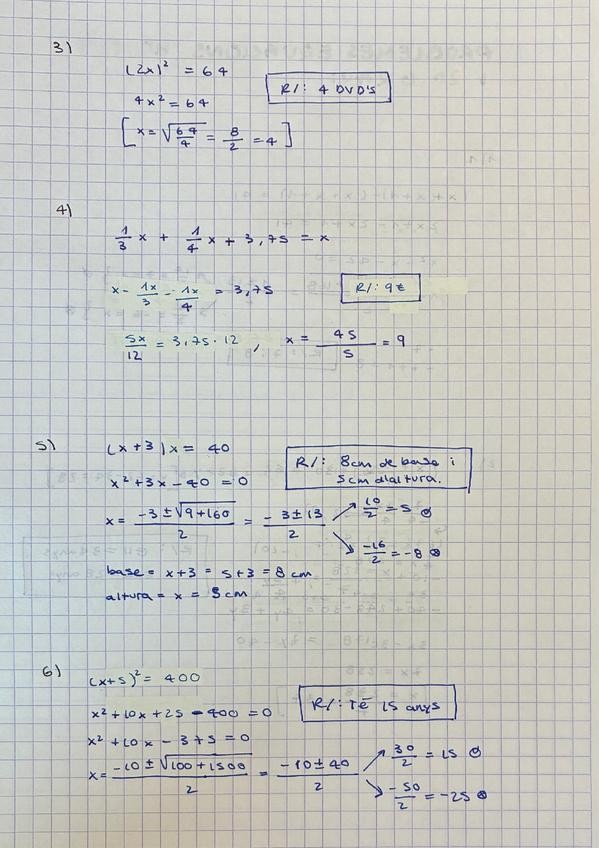 3)
(2x)² = 64
R/: 4 DVD's
4x² = 64
[x = √(64/4) = 8/2 = 4]
4)
1/3 x + 1/4 x + 3,75 = x
x - 1x/3 - 1x/4 = 3,75
R/: 9€
5x/12 = 3,75 · 12, x = 45/5 = 9
5)
(x+3)x = 40
R/: 8cm de base i
5cm d'altura.
x² + 3x - 40 = 0
x = (-3 ± √(9+160))/2 = (-3 ± 13)/2 ↗ 10/2 = 5
↘ -16/2 = -8
base = x+3 = 5+3 = 8 cm
altura = x = 5 cm
6)
(x+5)² = 400
R/: Té 15 anys
x² + 10x + 25 - 400 = 0
x² + 10x - 375 = 0
x = (-10 ± √(100+1500))/2 = (-10 ± 40)/2 ↗ 30/2 = 15
↘ -50/2 = -25